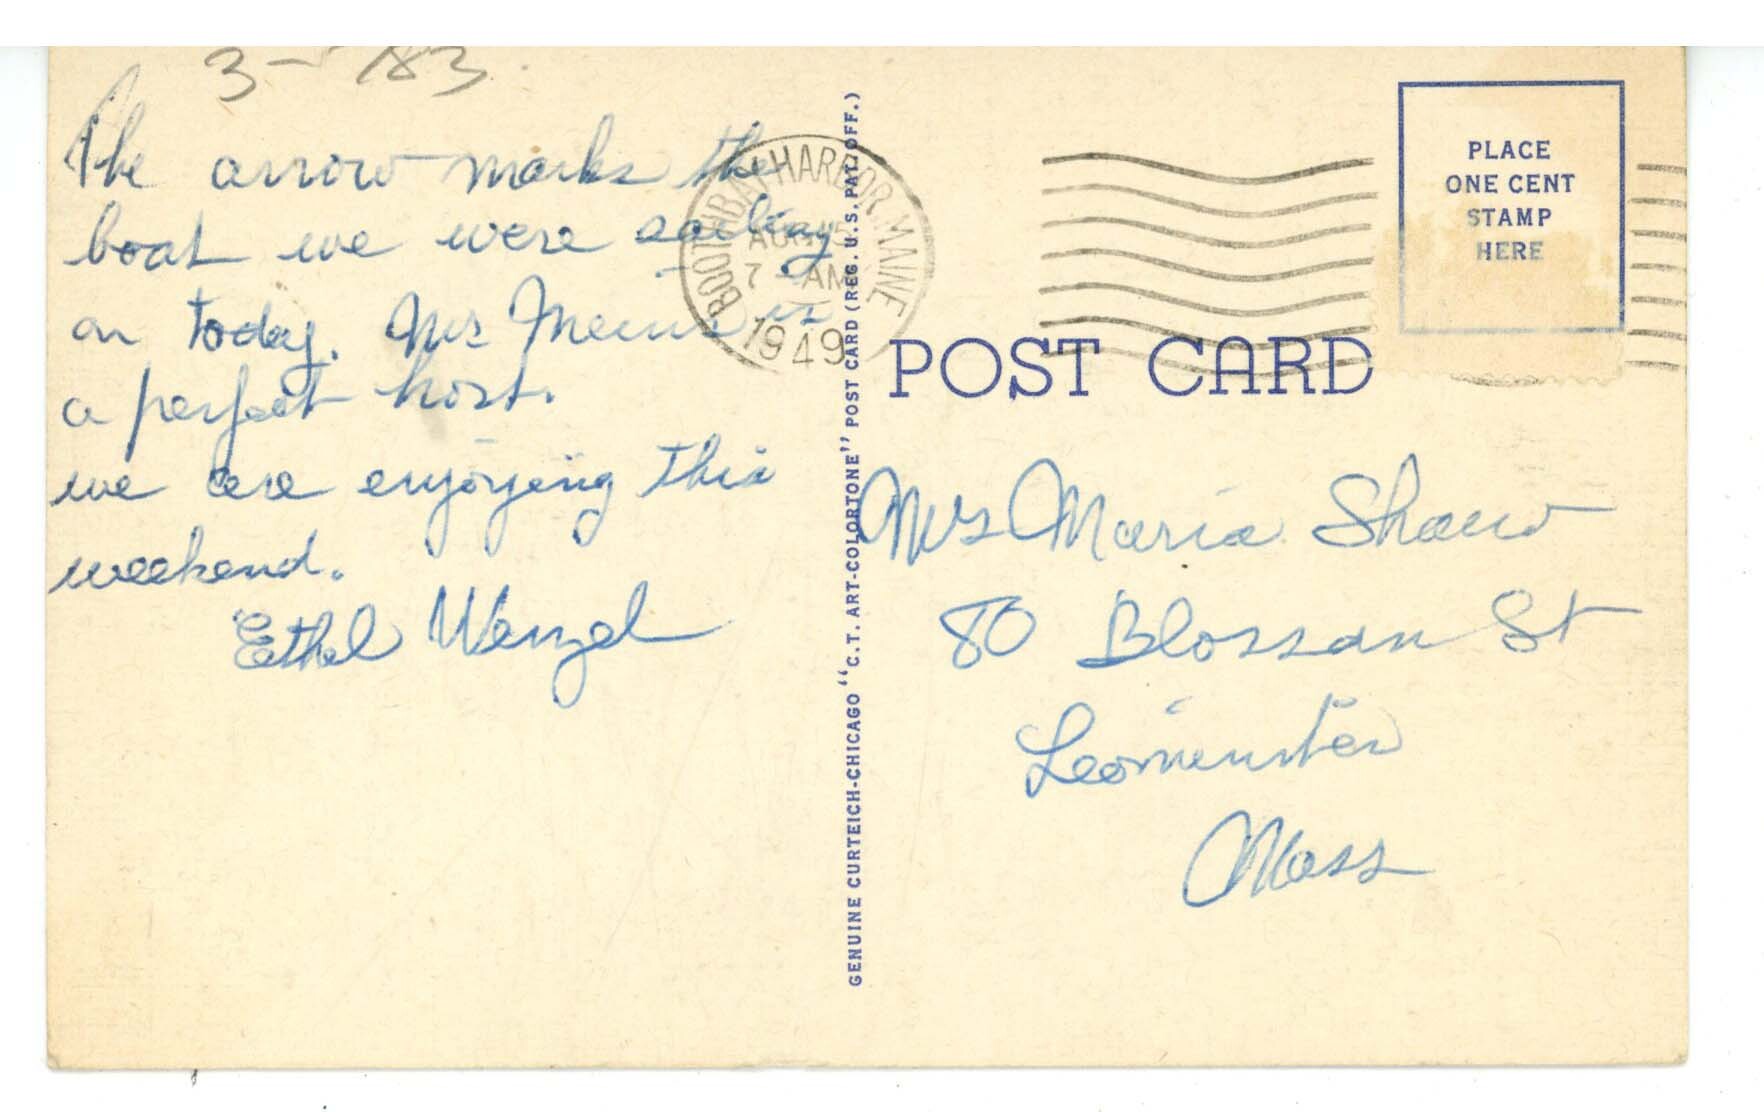 3-5 783
The arrow marks the
boat we were sailing
on today. Mr is
a perfect host.
we are enjoying this
weekend.
Ethel Wenzel
BOOTHBAY HARBOR, MAINE
AUG 15
7 AM
1949
GENUINE CURTEICH-CHICAGO "C.T. ART-COLORTONE" POST CARD (REG. U.S. PAT. OFF.)
PLACE
ONE CENT
STAMP
HERE
POST CARD
Mrs Maria Shaw
80 Blossom St
Leominster
Mass